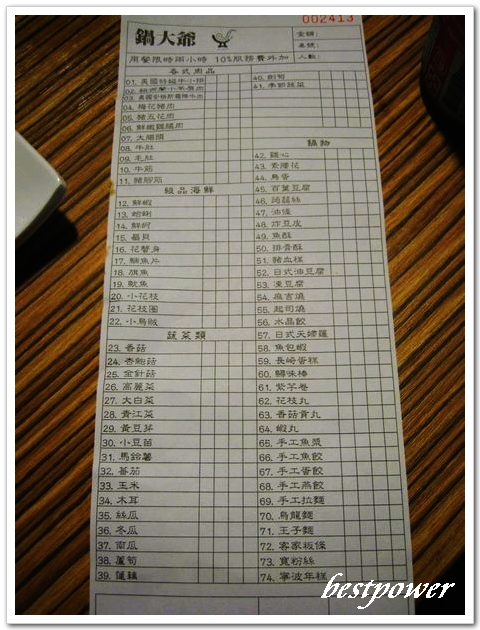 002413
鍋大爺
室號:
桌號:
人數:
用餐限時兩小時 10%服務費外加
各式肉品
01. 美國特級牛小排
02. 紐西蘭小羔羊肉
03. 美國安格斯霜降牛肉
04. 梅花豬肉
05. 豬五花肉
06. 鮮嫩雞腿肉
07. 大腸頭
08. 牛肚
09. 毛肚
10. 牛筋
11. 豬腳筋
極品海鮮
12. 鮮蝦
13. 蛤蜊
14. 鮮蚵
15. 扇貝
16. 花蟹身
17. 鯛魚片
18. 旗魚
19. 魷魚
20. 小花枝
21. 花枝圈
22. 小烏賊
蔬菜類
23. 香菇
24. 杏鮑菇
25. 金針菇
26. 高麗菜
27. 大白菜
28. 青江菜
29. 黃豆芽
30. 小豆苗
31. 馬鈴薯
32. 蕃茄
33. 玉米
34. 木耳
35. 絲瓜
36. 冬瓜
37. 南瓜
38. 蘆筍
39. 蓮藕
40. 劍筍
41. 季節蔬菜
鍋物
42. 雞心
43. 素腰花
44. 鳥蛋
45. 百葉豆腐
46. 蒟蒻絲
47. 油條
48. 炸豆皮
49. 魚酥
50. 排骨酥
51. 豬血糕
52. 日式油豆腐
53. 凍豆腐
54. 麻吉燒
55. 起司燒
56. 水晶餃
57. 日式天婦羅
58. 魚包蝦
59. 長崎蛋糕
60. 鱈味棒
61. 紫芋卷
62. 花枝丸
63. 香菇貢丸
64. 蝦丸
65. 手工魚漿
66. 手工魚餃
67. 手工蛋餃
68. 手工燕餃
69. 手工拉麵
70. 烏龍麵
71. 王子麵
72. 客家粄條
73. 寬粉絲
74. 寧波年糕
bestpower